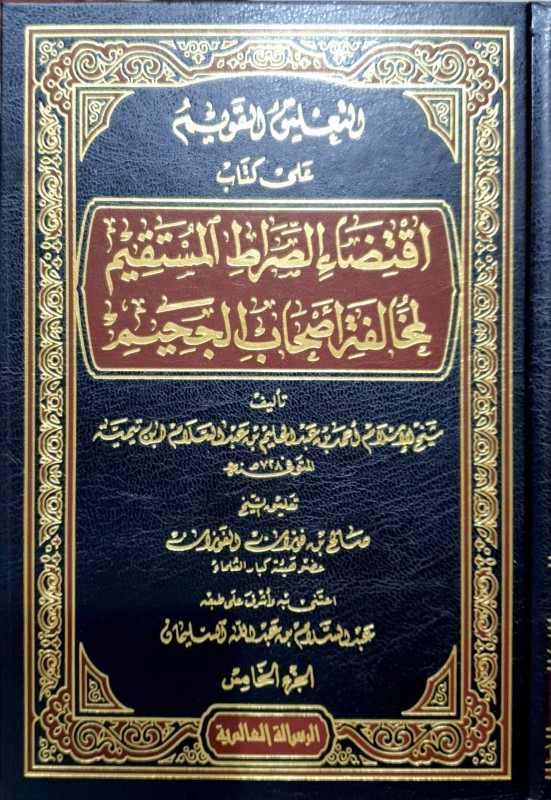 التعليق القويم
على كتاب
اقتضاء الصراط المستقيم
لمخالفة أصحاب الجحيم
تأليف
شيخ الإسلام أحمد بن عبد الحليم بن عبد السلام ابن تيمية
المتوفى ٧٢٨ هـ
تعليق الشيخ
صالح بن فوزان الفوزان
عضو هيئة كبار العلماء
اعتنى به وأشرف على طبعه
عبد السلام بن عبد الله السليمان
الجزء الخامس
الرسالة العالمية